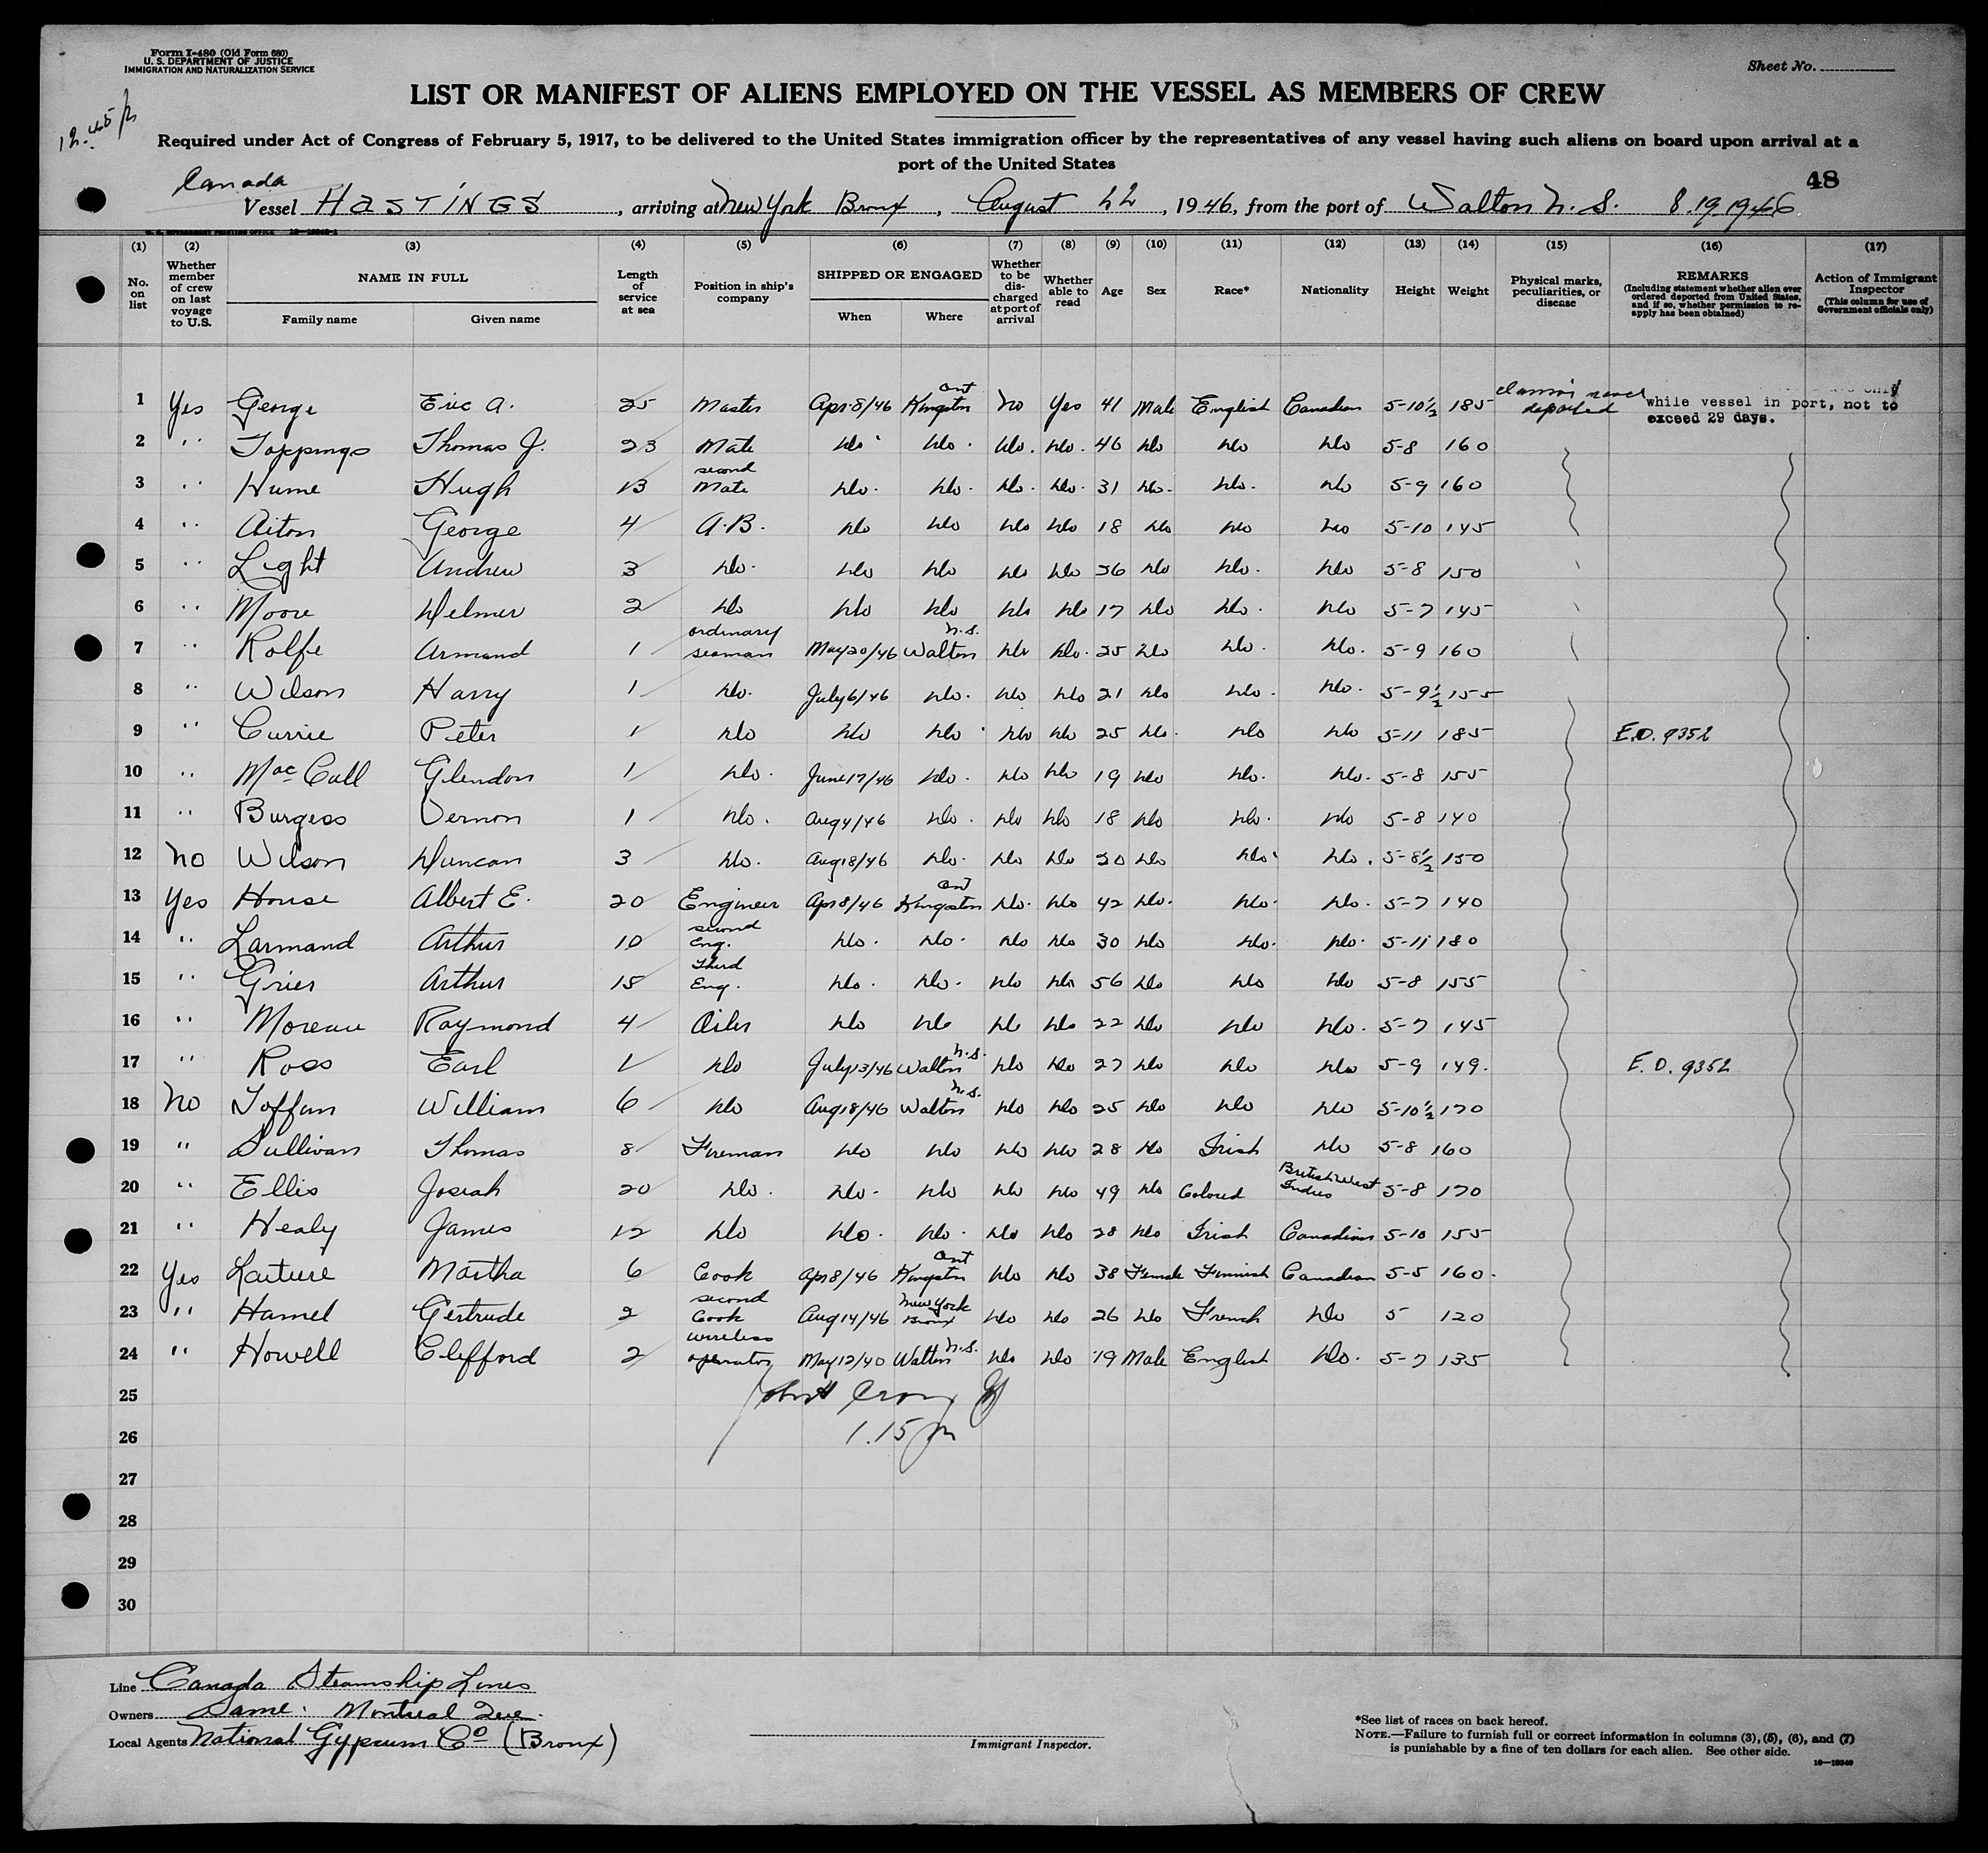 Form I-480 (Old Form 680)
U. S. DEPARTMENT OF JUSTICE
IMMIGRATION AND NATURALIZATION SERVICE
Sheet No.
12.45 p
LIST OR MANIFEST OF ALIENS EMPLOYED ON THE VESSEL AS MEMBERS OF CREW
Required under Act of Congress of February 5, 1917, to be delivered to the United States immigration officer by the representatives of any vessel having such aliens on board upon arrival at a
port of the United States
Canada
48
Vessel HASTINGS, arriving at New York Bronx, August 22, 1946, from the port of Walton N.S. 8.19.1946
(1) No. on list
(2) Whether member of crew on last voyage to U.S.
(3) NAME IN FULL Family name Given name
(4) Length of service at sea
(5) Position in ship's company
(6) SHIPPED OR ENGAGED When Where
(7) Whether to be discharged at port of arrival
(8) Whether able to read
(9) Age
(10) Sex
(11) Race*
(12) Nationality
(13) Height
(14) Weight
(15) Physical marks, peculiarities, or disease
(16) REMARKS (Including statement whether alien ever ordered deported from United States, and if so, whether permission to re-apply has been obtained)
(17) Action of Immigrant Inspector (This column for use of Government officials only)
1 Yes George Eric A. 25 Master Apr 8/46 Kingston Ont No Yes 41 Male English Canadian 5-10½ 185 never deported while vessel in port, not to exceed 29 days.
2 " Toppings Thomas J. 23 Mate do do do do 46 do do do 5-8 160
3 " Hume Hugh 13 second Mate do do do do 31 do do do 5-9 160
4 " Aiton George 4 A.B. do do do do 18 do do do 5-10 145
5 " Light Andrew 3 do do do do do 36 do do do 5-8 150
6 " Moore Delmer 2 do do do do do 17 do do do 5-7 145
7 " Rolfe Armand 1 ordinary seaman May 20/46 Walton N.S. do do 25 do do do 5-9 160
8 " Wilson Harry 1 do July 6/46 do do do 21 do do do 5-9½ 155
9 " Currie Peter 1 do do do do do 25 do do do 5-11 185 E.D. 9352
10 " MacCall Glendon 1 do June 17/46 do do do 19 do do do 5-8 155
11 " Burgess Vernon 1 do Aug 4/46 do do do 18 do do do 5-8 140
12 No Wilson Duncan 3 do Aug 18/46 do do do 20 do do do 5-8½ 150
13 Yes House Albert E. 20 Engineer Apr 8/46 Kingston Ont do do 42 do do do 5-7 140
14 " Larmand Arthur 10 second Eng. do do do do 30 do do do 5-11 180
15 " Grier Arthur 15 Third Eng. do do do do 56 do do do 5-8 155
16 " Moreau Raymond 4 Oiler do do do do 22 do do do 5-7 145
17 " Ross Earl 1 do July 13/46 Walton N.S. do do 27 do do do 5-9 149. E.D. 9352
18 No Toffan William 6 do Aug 18/46 Walton N.S. do do 25 do do do 5-10½ 170
19 " Sullivan Thomas 8 Fireman do do do do 28 do Irish do 5-8 160
20 " Ellis Josiah 20 do do do do do 49 do Colored British West Indies 5-8 170
21 " Healy James 12 do do do do do 28 do Irish Canadian 5-10 155
22 Yes Laiture Martha 6 Cook Apr 8/46 Kingston Ont do do 38 Female Finnish Canadian 5-5 160
23 " Hamel Gertrude 2 second Cook Aug 14/46 New York Bronx do do 26 do French do 5 120
24 " Howell Clifford 2 wireless operator May 12/40 Walton N.S. do do 19 Male English do 5-7 135
25
26 1.15 pm
27
28
29
30
Line Canada Steamship Lines
Owners Same. Montreal Que.
Local Agents National Gypsum Co (Bronx)
Immigrant Inspector.
*See list of races on back hereof.
NOTE.—Failure to furnish full or correct information in columns (3), (5), (6), and (7)
is punishable by a fine of ten dollars for each alien. See other side.